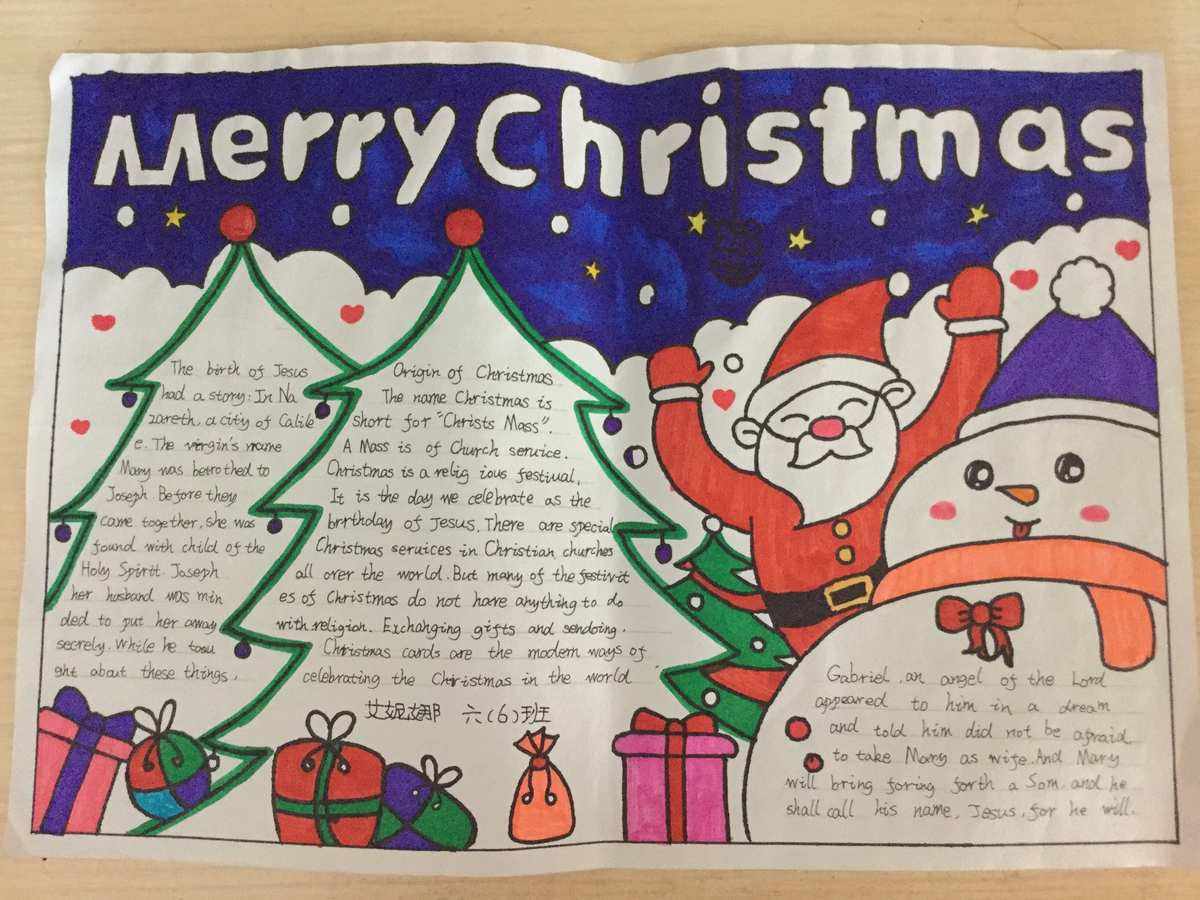 Merry Christmas
The birth of Jesus
had a story: In Na
zareth, a city of Calile
e. The virgin's name
Mary was betrothed to
Joseph Before they
came together, she was
found with child of the
Holy Spirit. Joseph
her husband was min
ded to put her away
secrely. While he tosu
ght about these things.
Origin of Christmas
The name Christmas is
short for "Christs Mass".
A Mass is of Church service.
Christmas is a relig ious festival.
It is the day we celebrate as the
brrthday of Jesus. There are special
Christmas services in Christian churches
all over the world. But many of the festivit
es of Christmas do not have anything to do
with religion. Exchanging gifts and sendoing.
Christmas cards are the modern ways of
celebrating the Christmas in the world
艾妮娜 六(6)班
Gabriel, an angel of the Lord
appeared to him in a dream
and told him did not be afraid
to take Mary as wife. And Mary
will bring foring forth a Som, and he
shall call his name, Jesus, for he will.